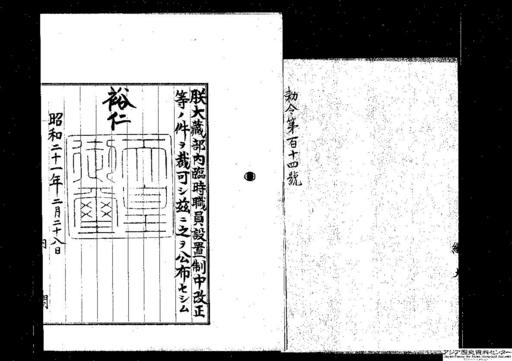 勅令第百十四號
朕大藏部內臨時職員設置制中改正
等ノ件ヲ裁可シ茲ニ之ヲ公布セシム
裕仁
天皇御璽
昭和二十一年二月二十八日
アジア歴史資料センター